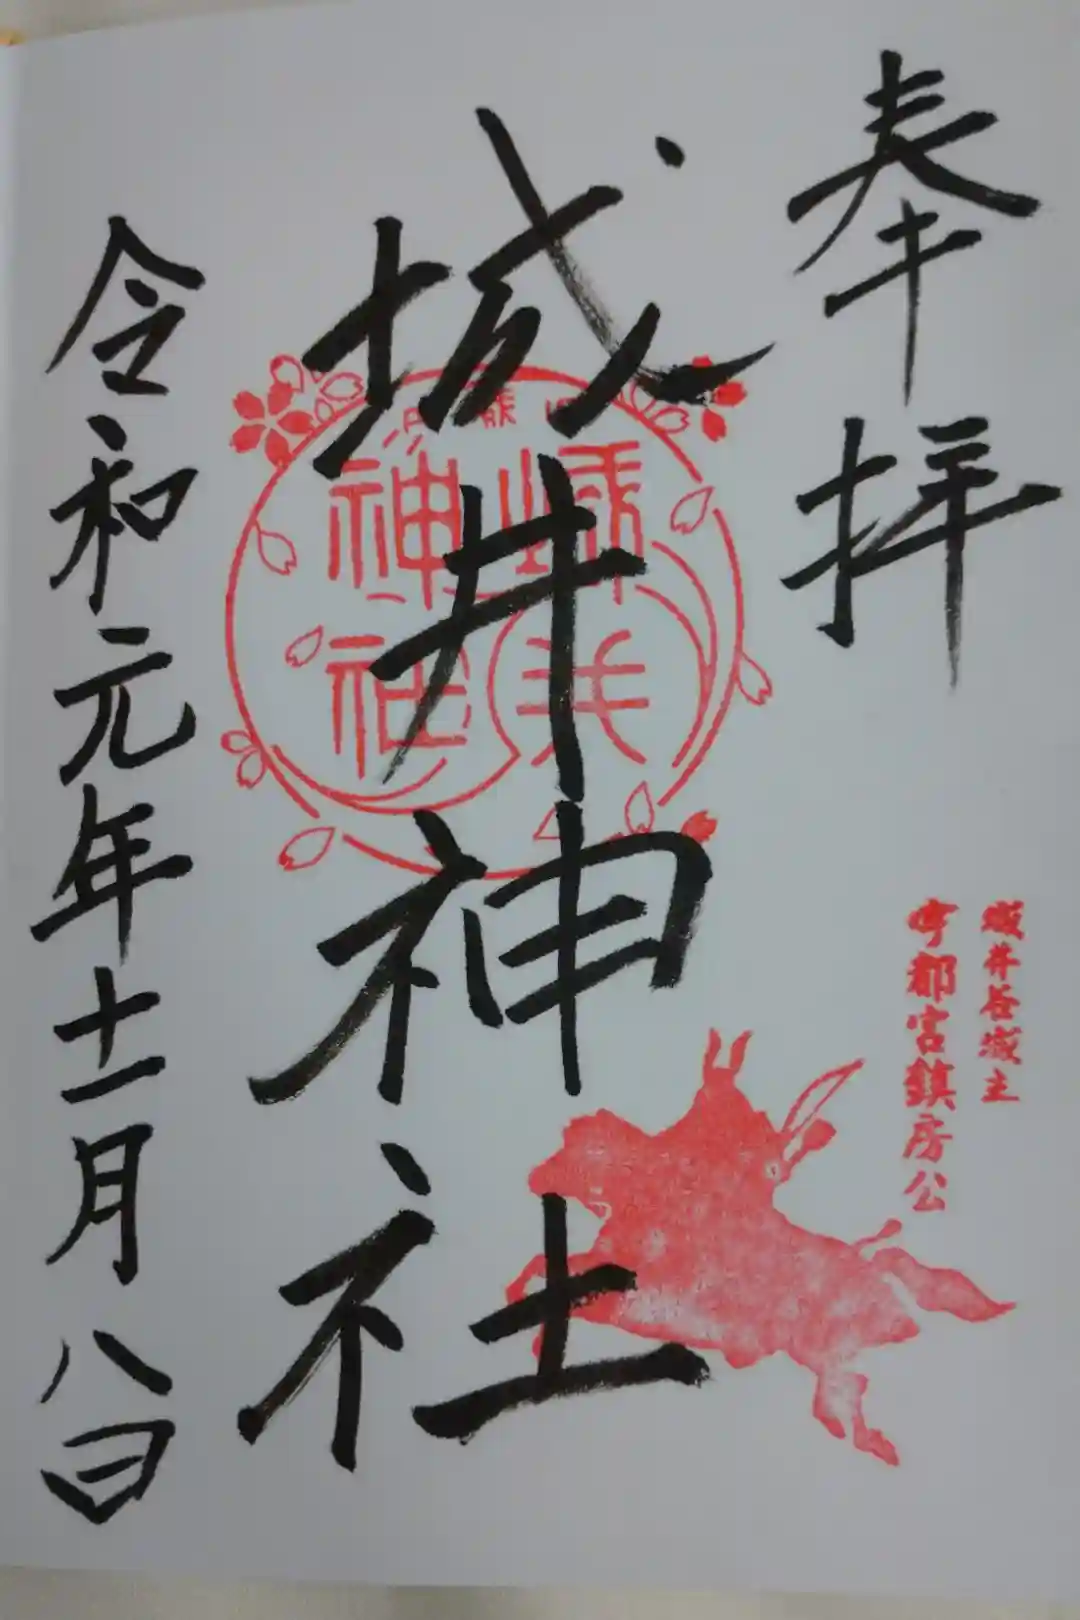 奉拝
城井谷城主
宇都宮鎮房公
城井神社
城井
神社
令和元年十一月八日